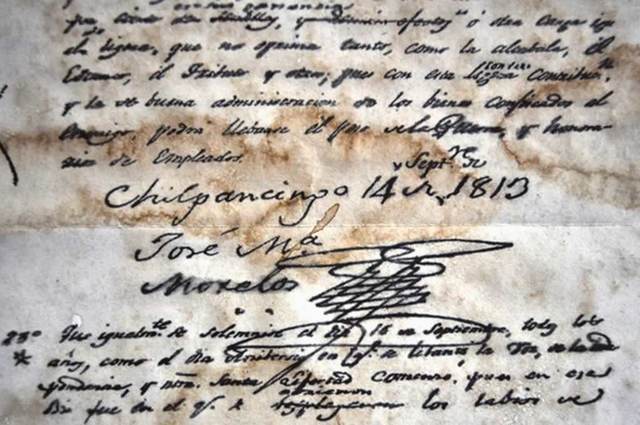 semillas, y demas efectos ó otra carga ig
ligera, que no oprima tanto, como la alcabala, el
Estanco, el Tributo y otros, pues con esta ligera contribu.n
y la buena administracion de los bienes confiscados al
Enemigo, podra llevarse el peso de la Guerra, y honora-
rios de Empleados.
Chilpancingo 14 de Sept.re de 1813
José M.a
Morelos
23.o Que igualm.te se solemnise el dia 16 de Septiembre, todos los
años, como el dia Anibersario en q.e se lebantó la Voz, de la
pendencia, y ntra. Santa Libertad comenzó, pues en ese
Dia fue en el q.e se los labios de